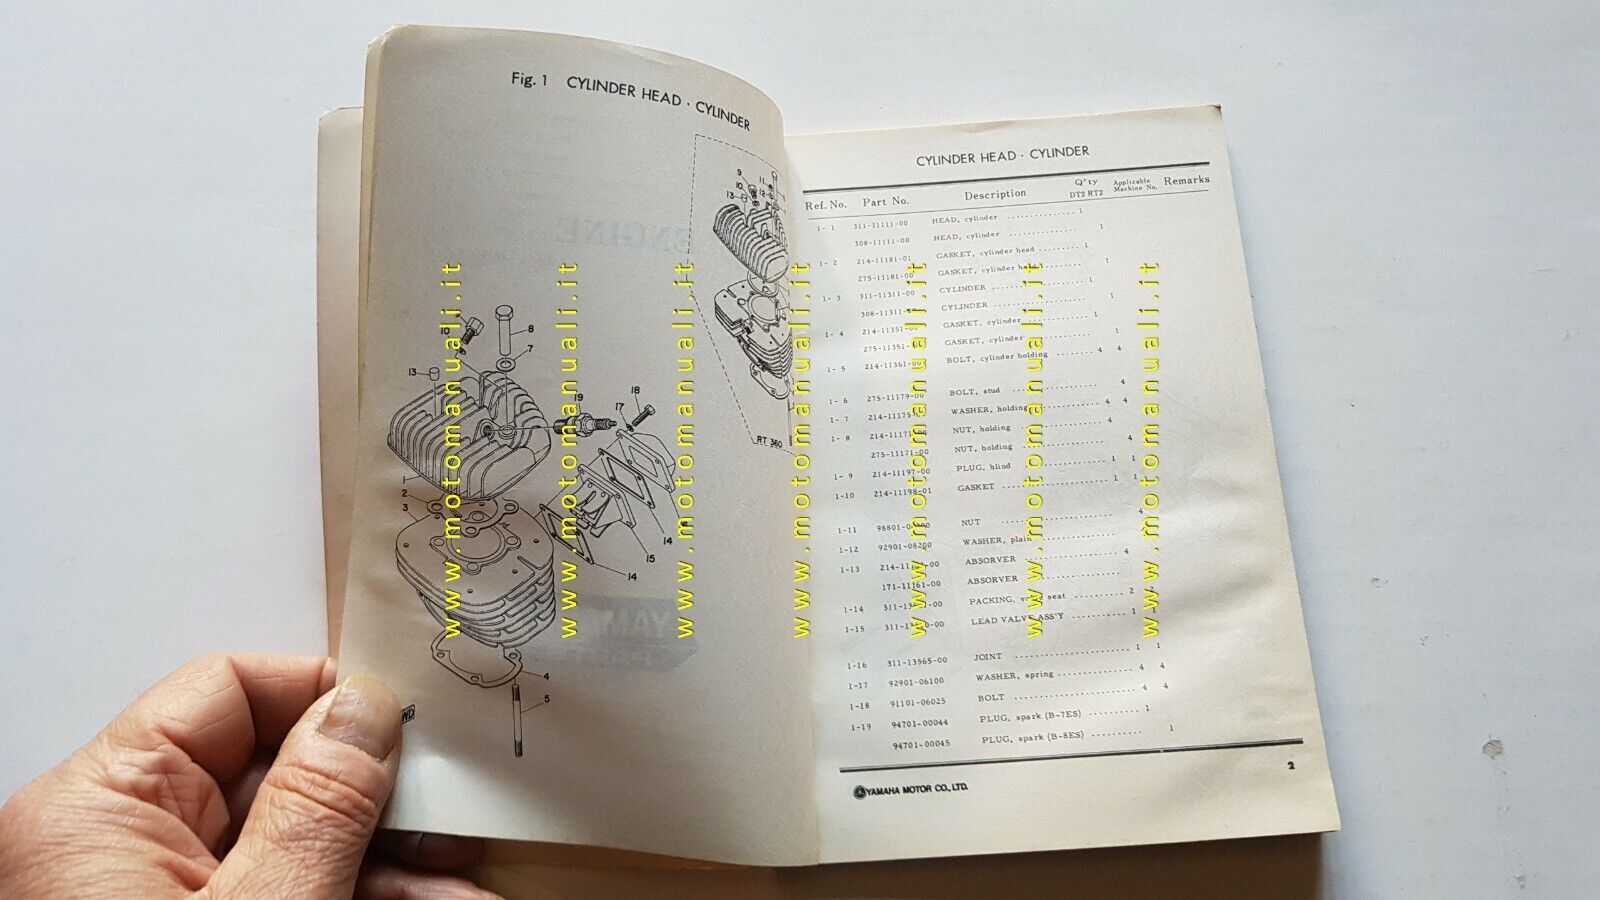 Fig. 1 CYLINDER HEAD · CYLINDER
9
10
13
11
12
RT 360
10
8
7
13
19
18
17
1
2
3
14
15
14
4
5
www.motomanuali.it
www.motomanuali.it
www.motomanuali.it
www.motomanuali.it
www.motomanuali.it
www.motomanuali.it
www.motomanuali.it
CYLINDER HEAD · CYLINDER
Ref. No. Part No. Description Q'ty DT2 RT2 Applicable Machine No. Remarks
1- 1 311-11111-00 HEAD, cylinder 1
308-11111-00 HEAD, cylinder 1
1- 2 214-11181-01 GASKET, cylinder head 1
275-11181-00 GASKET, cylinder head 1
1- 3 311-11311-00 CYLINDER 1
308-11311- CYLINDER 1
1- 4 214-11351-00 GASKET, cylinder 1
275-11351- GASKET, cylinder 1
1- 5 214-11361-00 BOLT, cylinder holding 4 4
1- 6 275-11179-00 BOLT, stud 4
1- 7 214-11175- WASHER, holding 4 4
1- 8 214-11171-00 NUT, holding 4
275-11171-00 NUT, holding 4
1- 9 214-11197-00 PLUG, blind 1 1
1-10 214-11198-01 GASKET 1 1
1-11 98801- NUT 4
1-12 92901-08200 WASHER, plain
1-13 214- -00 ABSORVER 4
171-11161-00 ABSORVER
1-14 311- -00 PACKING, seat 2
1-15 311- -00 LEAD VALVE ASS'Y 1 1
1-16 311-13565-00 JOINT 1 1
1-17 92901-06100 WASHER, spring 4 4
1-18 91101-06025 BOLT 4 4
1-19 94701-00044 PLUG, spark (B-7ES) 1
94701-00045 PLUG, spark (B-8ES) 1
YAMAHA MOTOR CO., LTD.
2